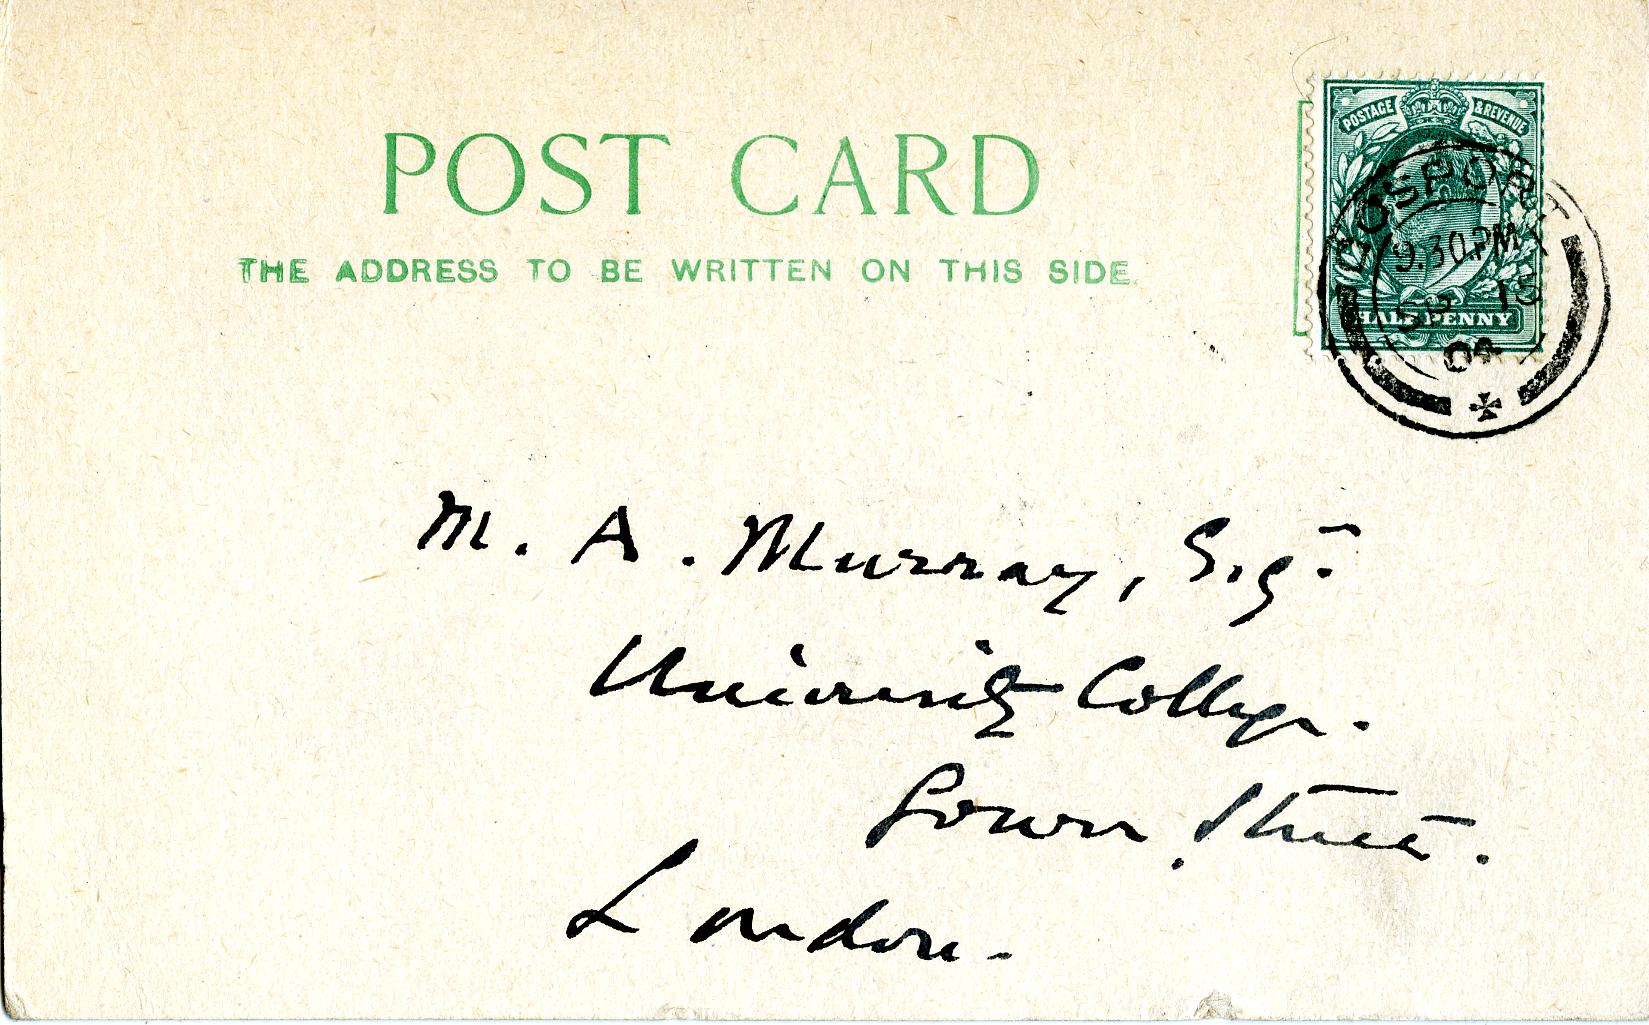 POST CARD
THE ADDRESS TO BE WRITTEN ON THIS SIDE.
POSTAGE & REVENUE
HALF PENNY
GOSPORT
9.30.PM
SP 15
04
M. A. Murray, Esqr.
University College.
Gower Street.
London.